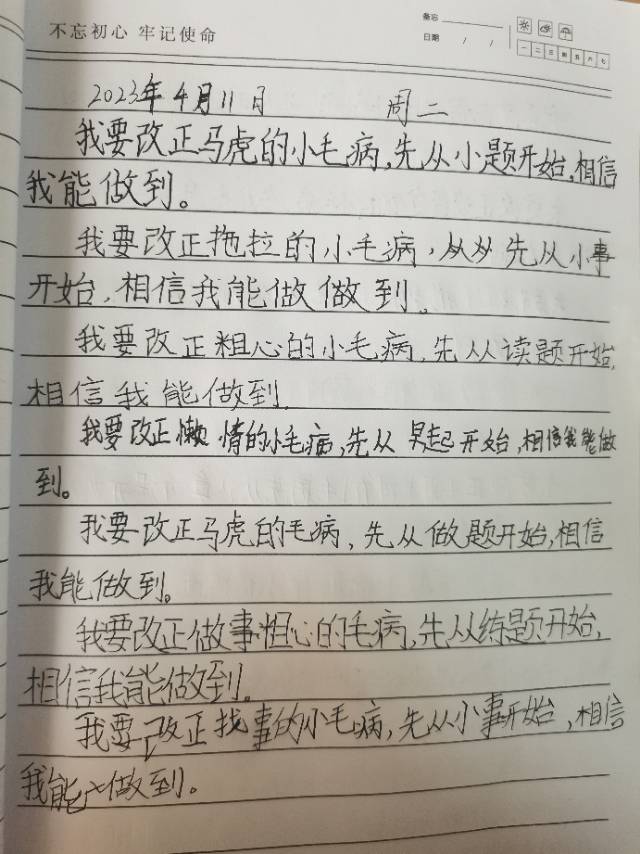 不忘初心 牢记使命
备忘
日期 / /
一 二 三 四 五 六 七
2023年4月11日 周二
我要改正马虎的小毛病,先从小题开始,相信
我能做到。
我要改正拖拉的小毛病,从从先从小事
开始,相信我能做做到。
我要改正粗心的小毛病,先从读题开始,
相信我能做到.
我要改正懒惰的小毛病,先从早起开始,相信我能做
到。
我要改正马虎的毛病,先从做题开始,相信
我能做到。
我要改正做事粗心的毛病,先从练题开始,
相信我能做到。
我要改正找事的小毛病,先从小事开始,相信
我能做到。